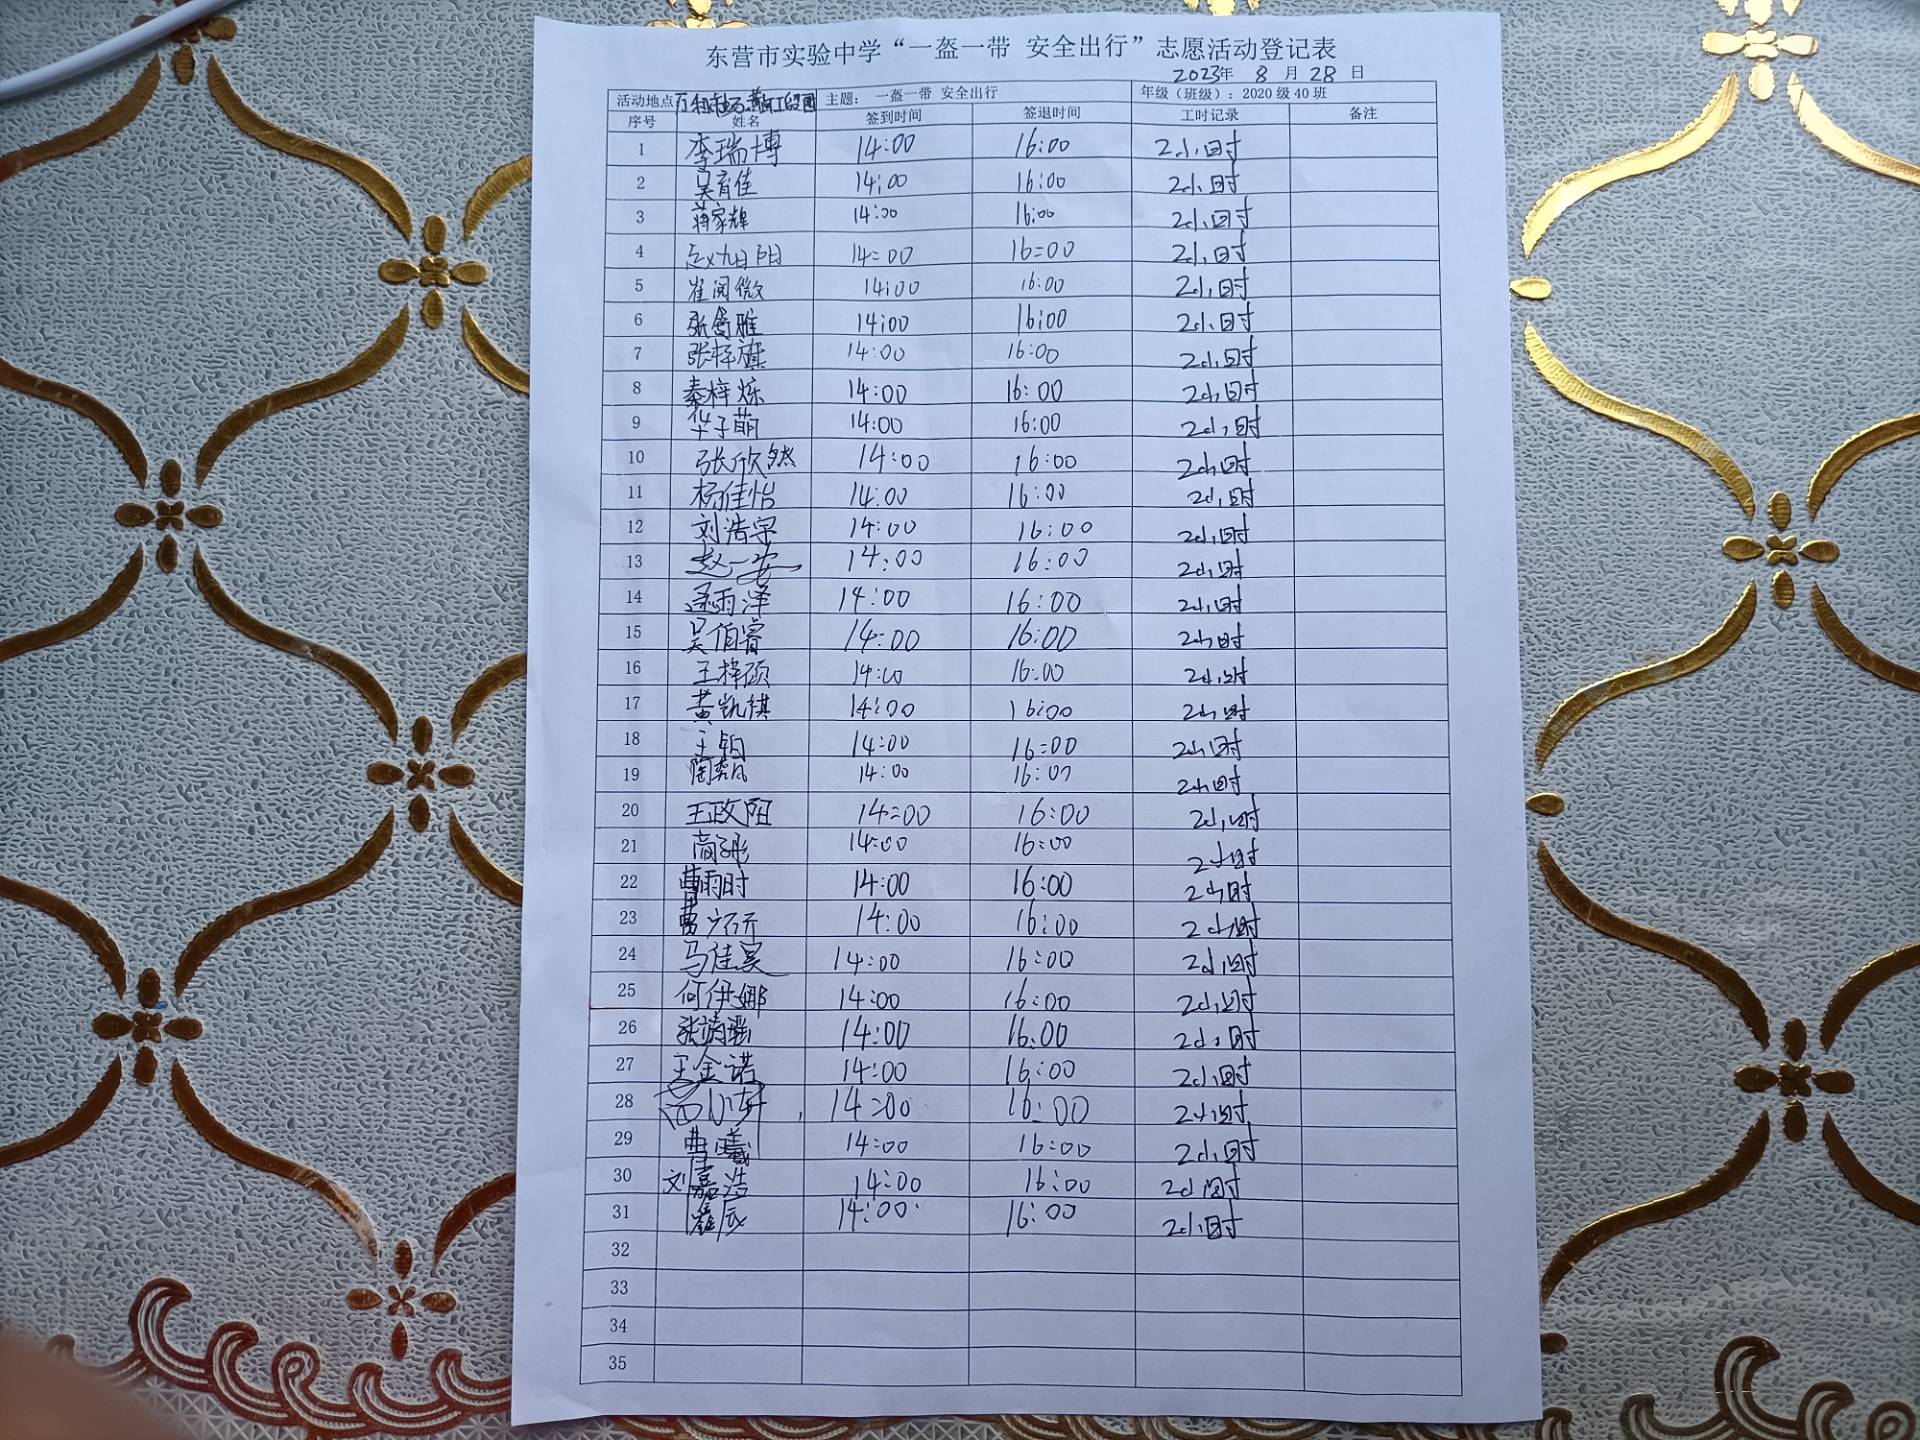 东营市实验中学“一盔一带 安全出行”志愿活动登记表
2023年 8 月 28 日
活动地点 主题： 一盔一带 安全出行 年级（班级）：2020 级 40 班
序号 姓名 签到时间 签退时间 工时记录 备注
1 李瑞博 14:00 16:00 2小时
2 吴育佳 14:00 16:00 2小时
3 蒋家辉 14:00 16:00 2小时
4 赵旭阳 14:00 16:00 2小时
5 崔阅微 14:00 16:00 2小时
6 张舒雅 14:00 16:00 2小时
7 张梓旗 14:00 16:00 2小时
8 秦梓烁 14:00 16:00 2小时
9 华子萌 14:00 16:00 2小时
10 张欣然 14:00 16:00 2小时
11 杨佳怡 14:00 16:00 2小时
12 刘浩宇 14:00 16:00 2小时
13 赵一安 14:00 16:00 2小时
14 逯雨泽 14:00 16:00 2小时
15 吴伯睿 14:00 16:00 2小时
16 王梓硕 14:00 16:00 2小时
17 黄凯祺 14:00 16:00 2小时
18 王铂 14:00 16:00 2小时
19 14:00 16:00 2小时
20 王政阳 14:00 16:00 2小时
21 14:00 16:00 2小时
22 曹雨时 14:00 16:00 2小时
23 14:00 16:00 2小时
24 马佳昊 14:00 16:00 2小时
25 何伊娜 14:00 16:00 2小时
26 张靖瑶 14:00 16:00 2小时
27 王金诺 14:00 16:00 2小时
28 14:00 16:00 2小时
29 曹曦 14:00 16:00 2小时
30 刘嘉浩 14:00 16:00 2小时
31 14:00 16:00 2小时
32
33
34
35